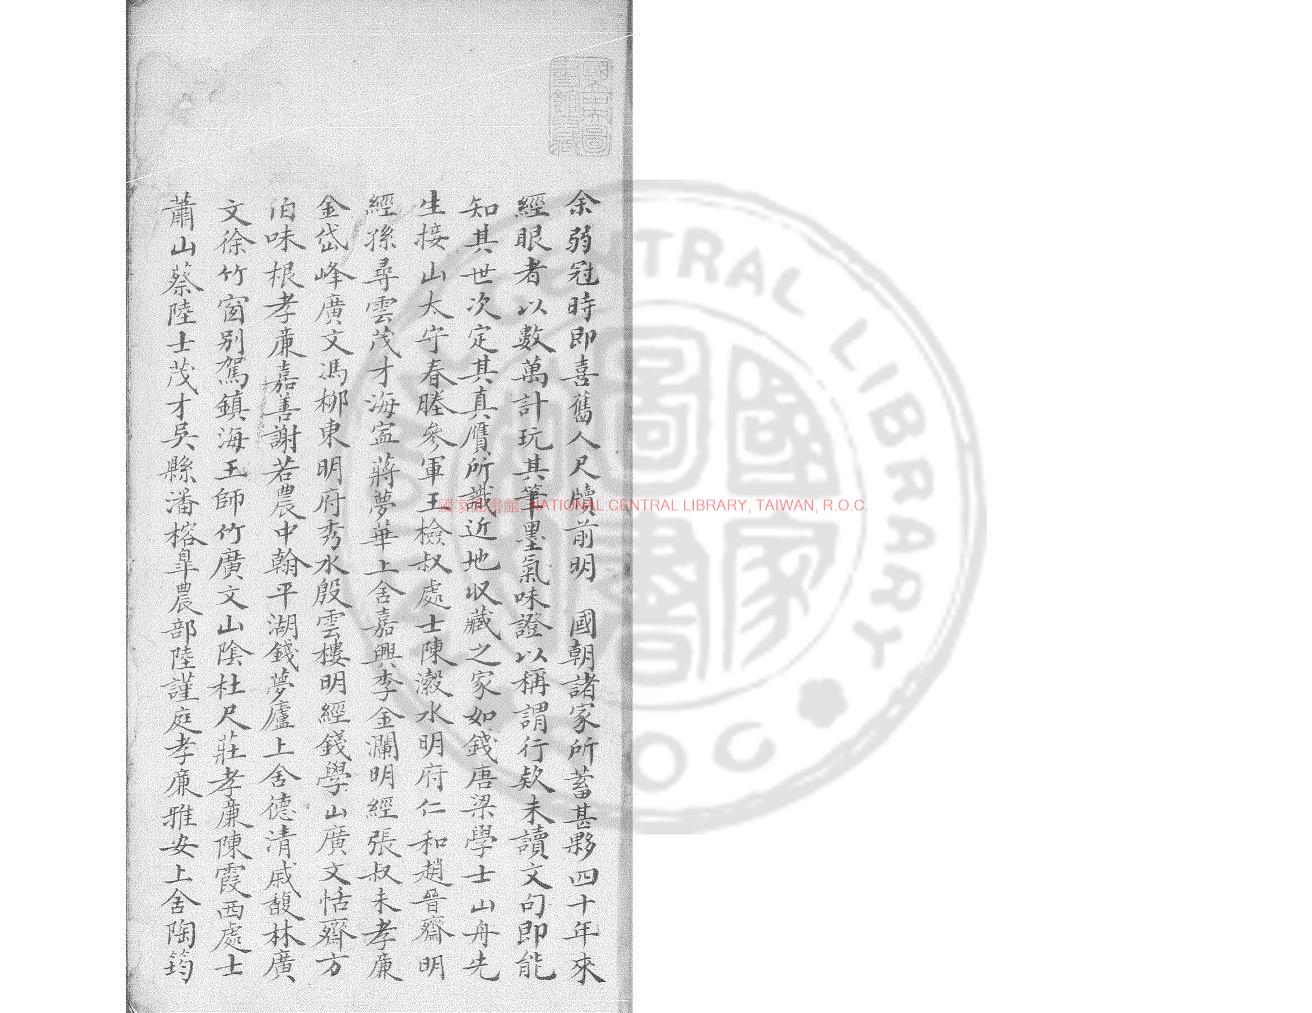 余弱冠時即喜舊人尺牘前明　國朝諸家所蓄甚夥四十年來
經眼者以數萬計玩其筆墨氣味證以稱謂行欵未讀文句即能
知其世次定其真贋所識近地收藏之家如錢唐梁學士山舟先
生接山太守春塍參軍王檢叔處士陳澂水明府仁和趙晉齋明
經孫尋雲茂才海寍蔣夢華上舍嘉興李金瀾明經張叔未孝廉
金岱峰廣文馮柳東明府秀水殷雲樓明經錢學山廣文恬齋方
伯味根孝廉嘉善謝若農中翰平湖錢夢廬上舍德清戚馥林廣
文徐竹窗別駕鎮海王師竹廣文山陰杜尺莊孝廉陳霞西處士
蕭山蔡陸士茂才吳縣潘榕皋農部陸謹庭孝廉雅安上舍陶筠
國家圖書館, NATIONAL CENTRAL LIBRARY, TAIWAN, R.O.C.
國家圖書館藏
CENTRAL LIBRARY
ROC